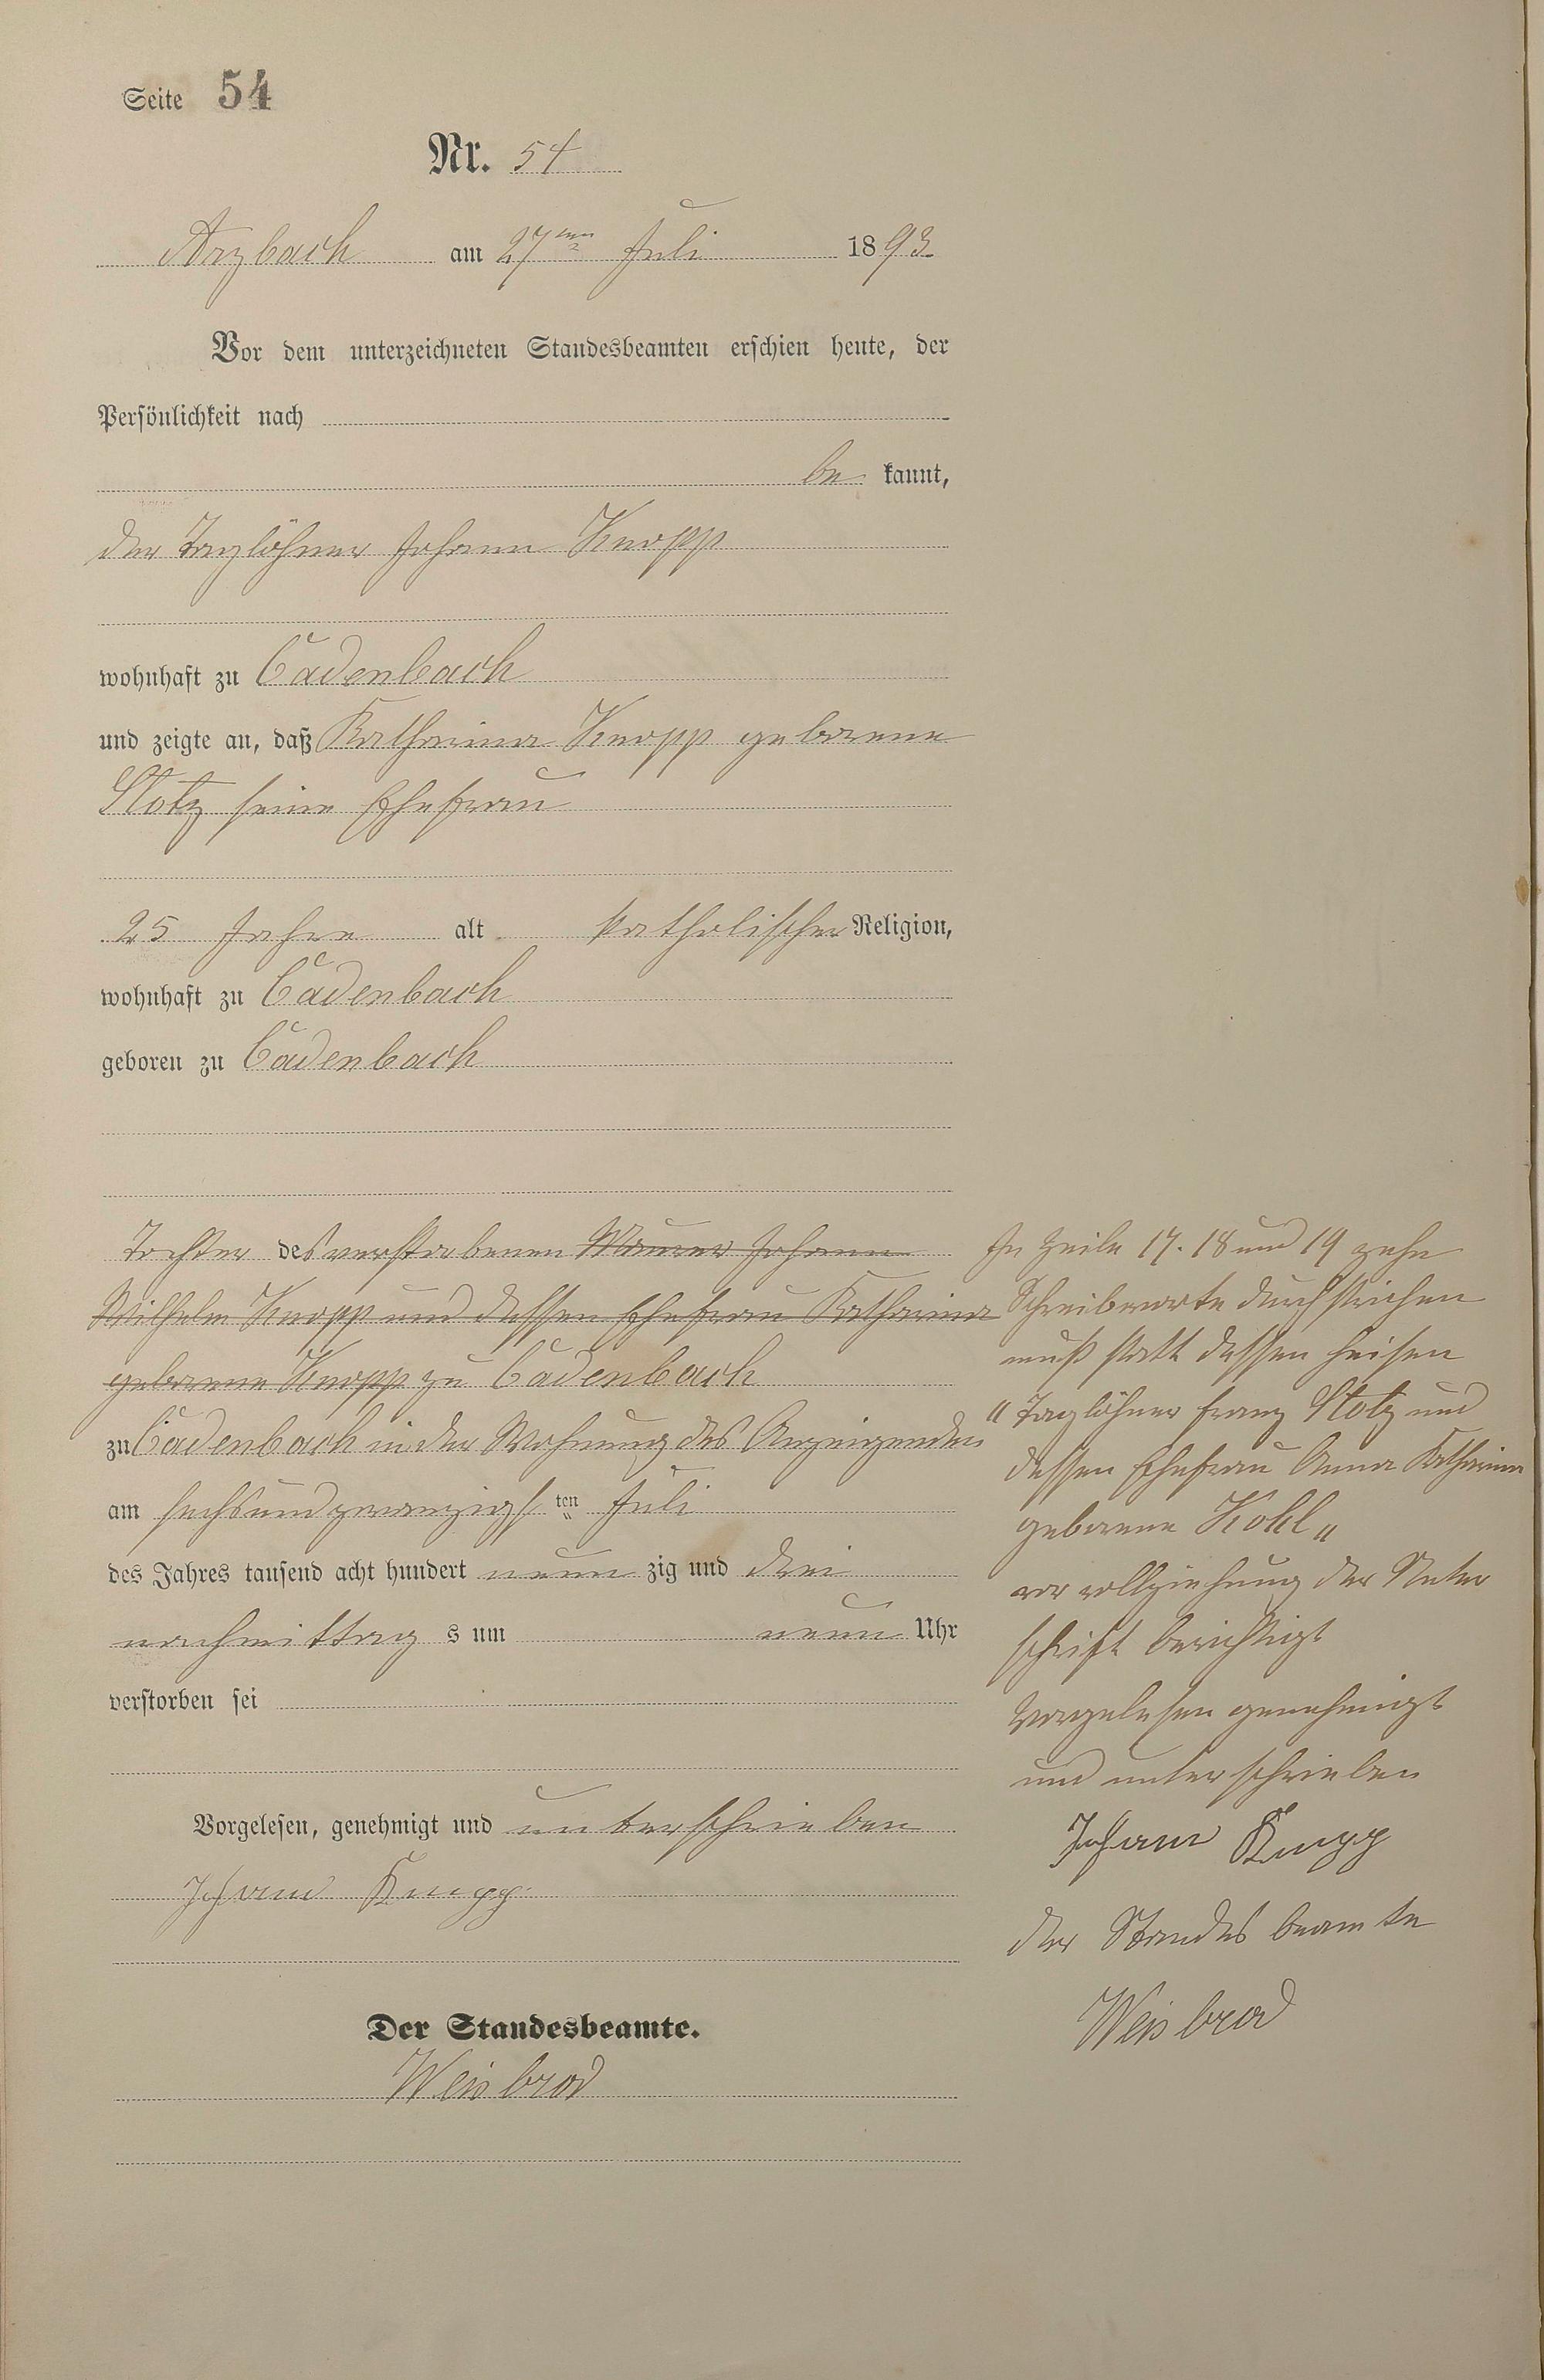 Seite 54
Nr. 54
Arzbach am 27ten Juli 1893.
Vor dem unterzeichneten Standesbeamten erschien heute, der
Persönlichkeit nach
be kannt,
der Taglöhner Johann Knopp
wohnhaft zu Cadenbach
und zeigte an, daß Katharina Knopp geborene
Stotz seine Ehefrau
25 Jahre alt katholischer Religion,
wohnhaft zu Cadenbach
geboren zu Cadenbach
Tochter des verstorbenen Maurer Johann
Wilhelm Knopp und dessen Ehefrau Katharina
geborene Knopp zu Cadenbach
zu Cadenbach in der Wohnung des Anzeigenden
am sechsundzwanzigsten Juli
des Jahres tausend acht hundert neun zig und drei
nachmittag s um neun Uhr
verstorben sei
Vorgelesen, genehmigt und unterschrieben
Johann Knopp
Der Standesbeamte.
Weisbrod
In Zeile 17. 18 und 19 zehn
Schreibworte durchstrichen
muß statt dessen heisen
"Taglöhner Franz Stotz und
dessen Ehefrau Anna Katharina
geborene Kohl"
vor vollziehung der Unter
schrift berichtigt
Vorgelesen genehmigt
und unterschrieben
Johann Knopp
der Standes beamte
Weisbrod